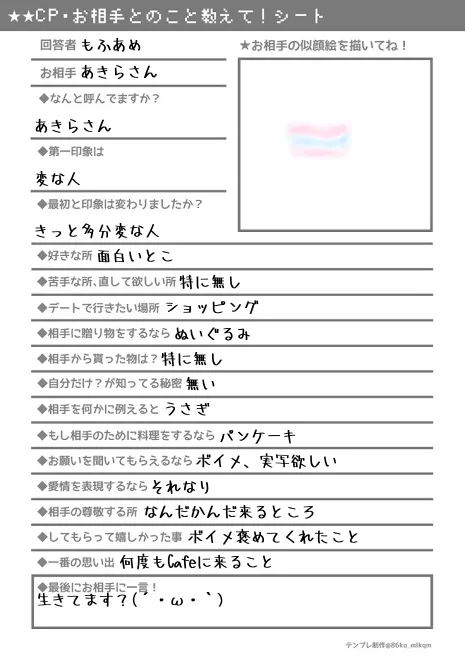 ★★CP・お相手とのこと教えて！シート
回答者 もふあめ
★お相手の似顔絵を描いてね！
お相手 あきらさん
◆なんと呼んでますか？
あきらさん
◆第一印象は
変な人
◆最初と印象は変わりましたか？
きっと多分変な人
◆好きな所 面白いとこ
◆苦手な所、直して欲しい所 特に無し
◆デートで行きたい場所 ショッピング
◆相手に贈り物をするなら ぬいぐるみ
◆相手から貰った物は？ 特に無し
◆自分だけ？が知ってる秘密 無い
◆相手を何かに例えると うさぎ
◆もし相手のために料理をするなら パンケーキ
◆お願いを聞いてもらえるなら ボイメ、実写欲しい
◆愛情を表現するなら それなり
◆相手の尊敬する所 なんだかんだ来るところ
◆してもらって嬉しかった事 ボイメ褒めてくれたこと
◆一番の思い出 何度もCafeに来ること
◆最後にお相手に一言！
生きてます？(´・ω・｀)
テンプレ制作@86ko_mlkqm